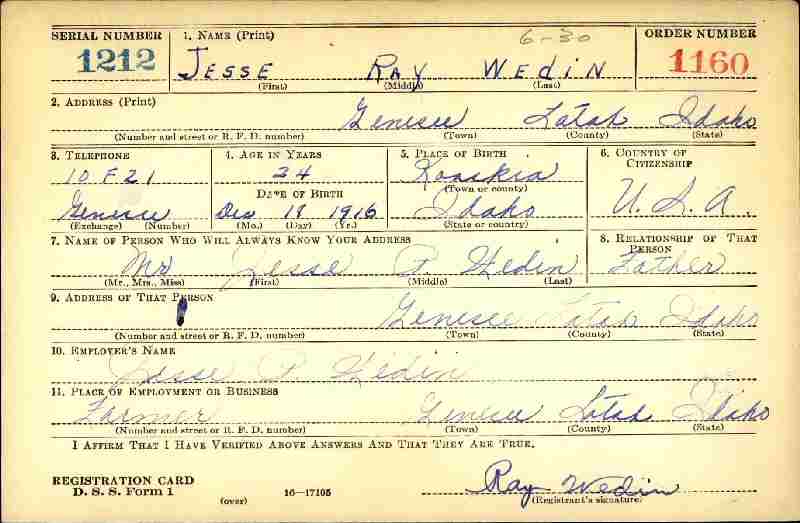 SERIAL NUMBER 1. NAME (Print) 6-30 ORDER NUMBER
1212 JESSE RAY WEDIN 1160
(First) (Middle) (Last)
2. ADDRESS (Print)
Genesee Latah Idaho
(Number and street or R. F. D. number) (Town) (County) (State)
3. TELEPHONE 4. AGE IN YEARS 5. PLACE OF BIRTH 6. COUNTRY OF CITIZENSHIP
10 F 21 24 Kooskia
(Town or county)
DATE OF BIRTH
Genesee Dec 1916 Idaho U. S. A.
(Exchange) (Number) (Mo.) (Day) (Yr.) (State or country)
7. NAME OF PERSON WHO WILL ALWAYS KNOW YOUR ADDRESS 8. RELATIONSHIP OF THAT PERSON
Mr Jesse P. Wedin Father
(Mr., Mrs., Miss) (First) (Middle) (Last)
9. ADDRESS OF THAT PERSON
Genesee Latah Idaho
(Number and street or R. F. D. number) (Town) (County) (State)
10. EMPLOYER'S NAME
Jesse P. Wedin
11. PLACE OF EMPLOYMENT OR BUSINESS
Farmer Genesee Latah Idaho
(Number and street or R. F. D. number) (Town) (County) (State)
I AFFIRM THAT I HAVE VERIFIED ABOVE ANSWERS AND THAT THEY ARE TRUE.
REGISTRATION CARD
D. S. S. Form 1 (over) 16-17105 Ray Wedin
(Registrant's signature)